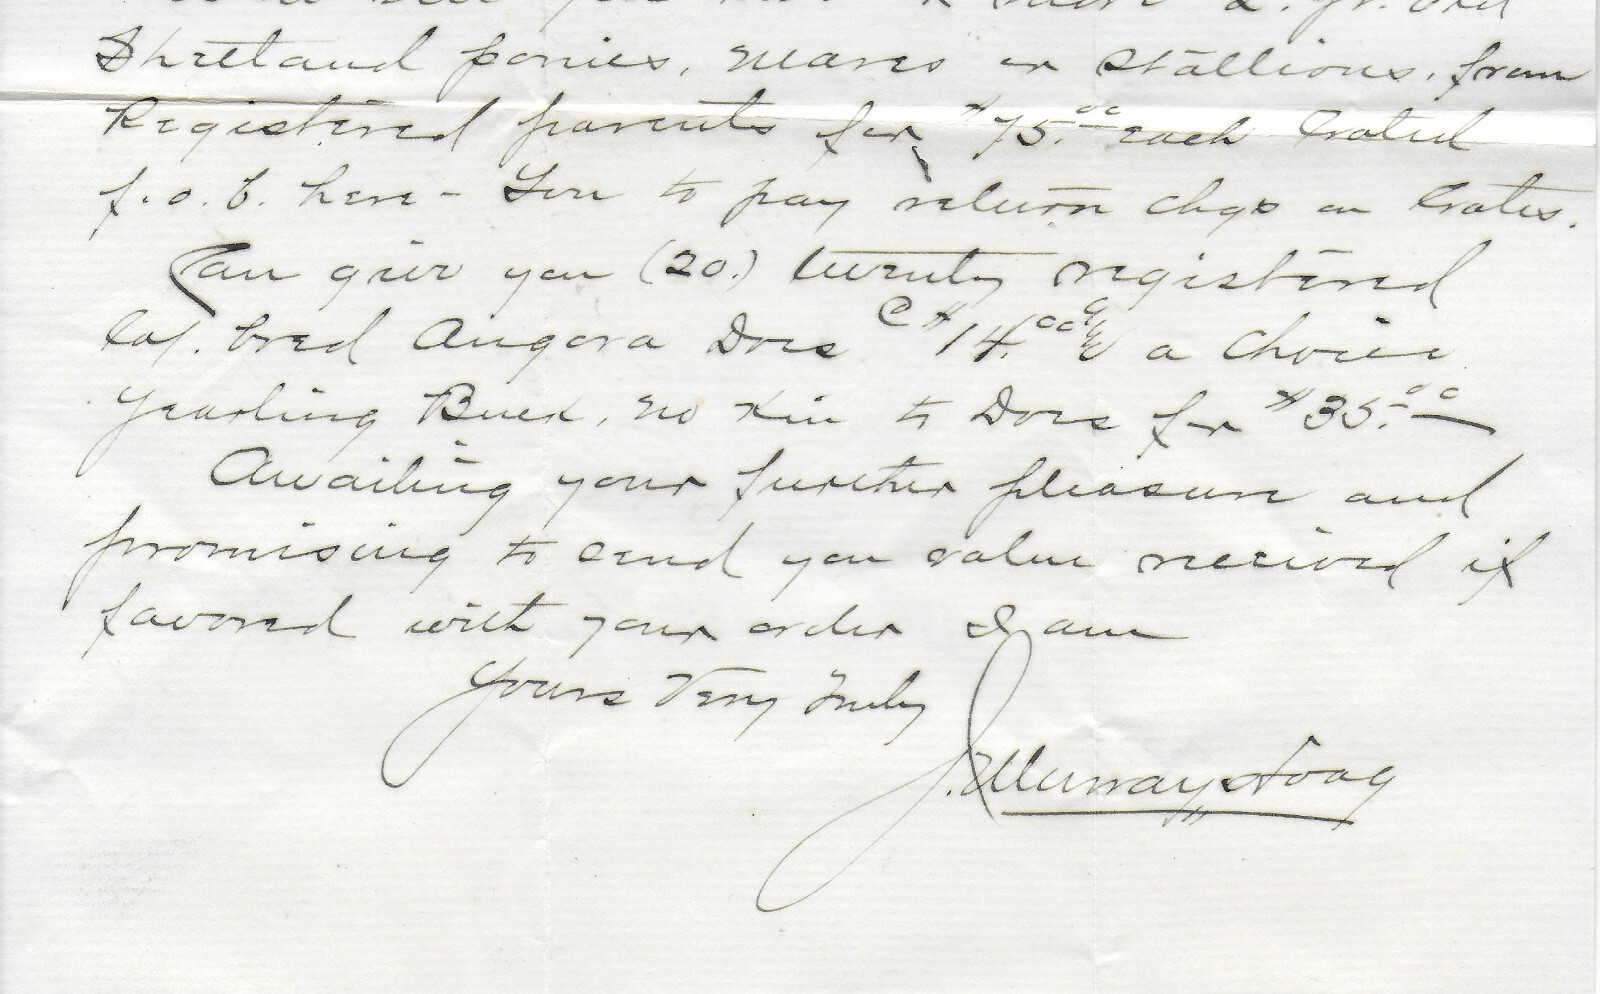 2. yr. old
Shetland ponies, mares or stallions, from
Registered parents for $75.00 each Crated
f.o.b. here - You to pay return chgs on Crates.
Can give you (20.) twenty registered
Cal. bred Angora Does @ $14.00 & a choice
Yearling Buck, no kin to Does for $35.00
Awaiting your further pleasure and
promising to send you value received if
favored with your order I am
Yours Very Truly
J. Murray Hoag